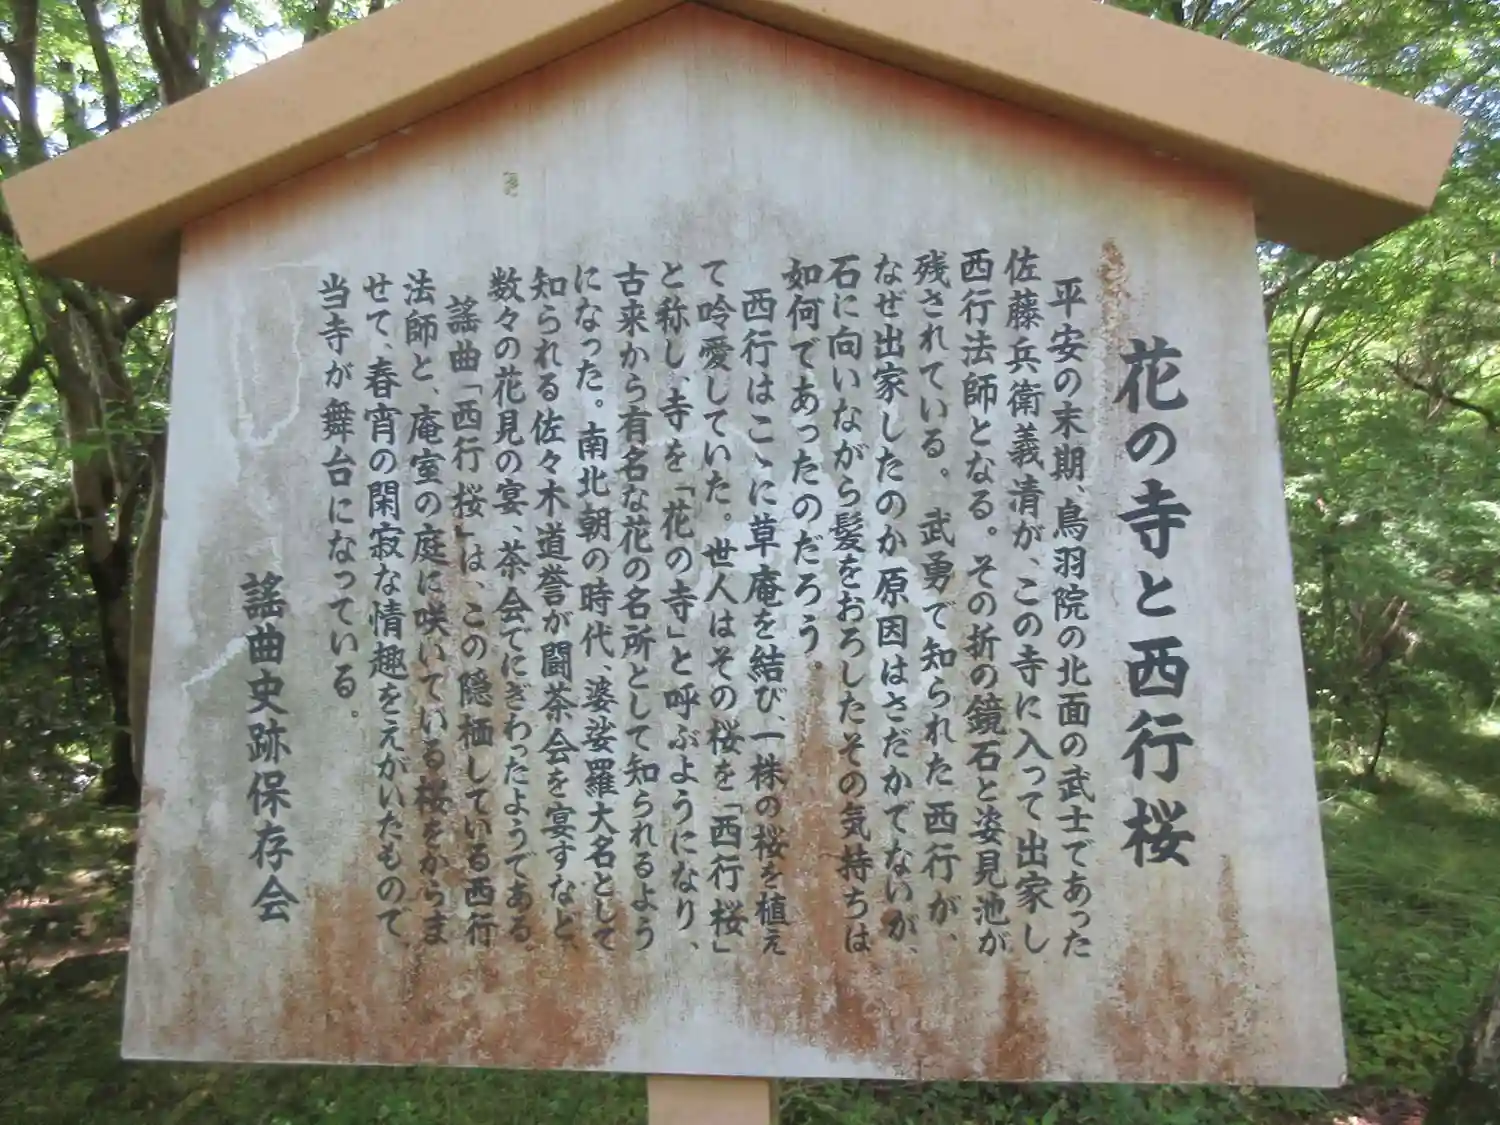 花の寺と西行桜
平安の末期、鳥羽院の北面の武士であった
佐藤兵衛義清が、この寺に入って出家し
西行法師となる。その折の鏡石と姿見池が
残されている。武勇で知られた西行が、
なぜ出家したのか原因はさだかでないが、
石に向いながら髪をおろしたその気持ちは
如何であったのだろう。
西行はこゝに草庵を結び、一株の桜を植え
て吟愛していた。世人はその桜を「西行桜」
と称し、寺を「花の寺」と呼ぶようになり、
古来から有名な花の名所として知られるよう
になった。南北朝の時代、婆娑羅大名として
知られる佐々木道誉が闘茶会を宴すなど、
数々の花見の宴、茶会でにぎわったようである。
謡曲「西行桜」は、この隠栖している西行
法師と、庵室の庭に咲いている桜をからま
せて、春宵の閑寂な情趣をえがいたもので、
当寺が舞台になっている。
謡曲史跡保存会